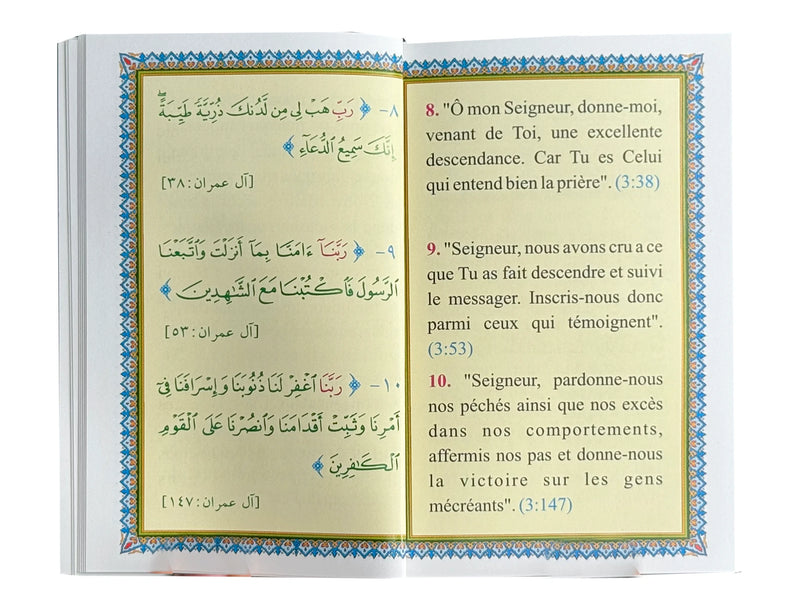 ٨- ﴿ رَبِّ هَبْ لِى مِن لَّدُنكَ ذُرِّيَّةً طَيِّبَةً ۖ
إِنَّكَ سَمِيعُ ٱلدُّعَآءِ ﴾
[آل عمران: ٣٨]
٩- ﴿ رَبَّنَآ ءَامَنَّا بِمَآ أَنزَلْتَ وَٱتَّبَعْنَا
ٱلرَّسُولَ فَٱكْتُبْنَا مَعَ ٱلشَّٰهِدِينَ ﴾
[آل عمران: ٥٣]
١٠- ﴿ رَبَّنَا ٱغْفِرْ لَنَا ذُنُوبَنَا وَإِسْرَافَنَا فِىٓ
أَمْرِنَا وَثَبِّتْ أَقْدَامَنَا وَٱنصُرْنَا عَلَى ٱلْقَوْمِ
ٱلْكَٰفِرِينَ ﴾
[آل عمران: ١٤٧]
8. "Ô mon Seigneur, donne-moi,
venant de Toi, une excellente
descendance. Car Tu es Celui
qui entend bien la prière". (3:38)
9. "Seigneur, nous avons cru a ce
que Tu as fait descendre et suivi
le messager. Inscris-nous donc
parmi ceux qui témoignent".
(3:53)
10. "Seigneur, pardonne-nous
nos péchés ainsi que nos excès
dans nos comportements,
affermis nos pas et donne-nous
la victoire sur les gens
mécréants". (3:147)